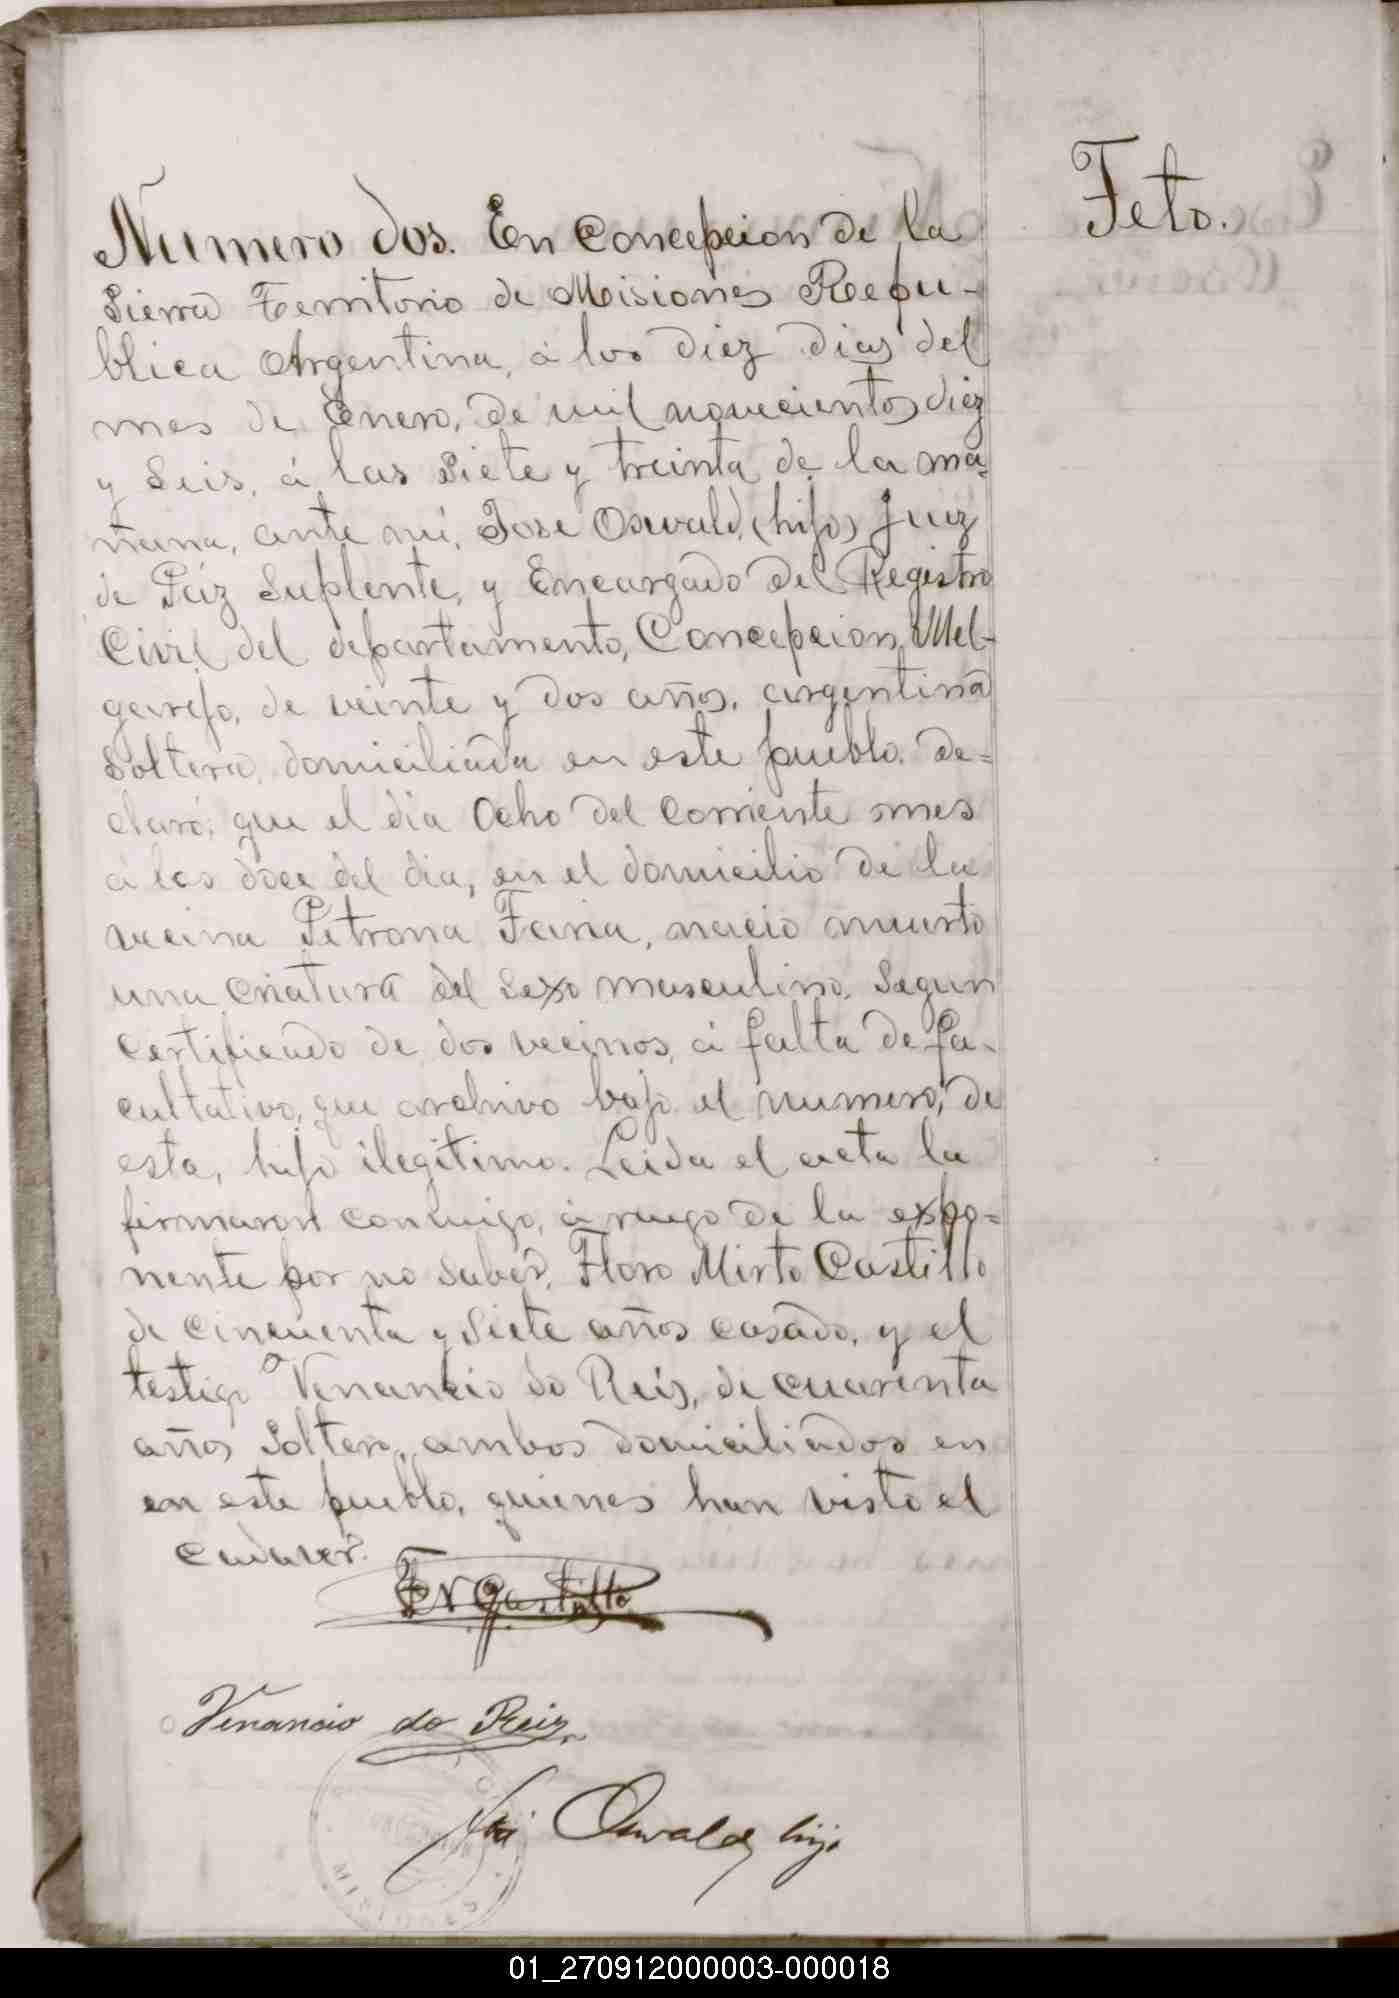 Feto.
Numero dos. En Concepcion de la
Sierra Territorio de Misiones Repu-
blica Argentina, á los diez dias del
mes de Enero, de mil novecientos diez
y seis, á las siete y treinta de la ma-
ñana, ante mi, Jose Oswald, (hijo) Juez
de Paz Suplente, y Encargado del Registro
Civil del departamento, Concepcion Mel-
garejo, de veinte y dos años, argentina
soltera, domiciliada en este pueblo. de=
claró; que el dia Ocho del corriente mes
á las doce del dia, en el domicilio de la
vecina Petrona Faria, nacio muerto
una criatura del sexo masculino. Segun
certificado de dos vecinos, á falta de fa-
cultativo, que archivo bajo el numero, de
esta, hijo ilegitimo. Leida el acta la
firmaron conmigo, á ruego de la expo=
nente por no saber, Floro Mirto Castillo
de cincuenta y siete años casado, y el
testigo Venancio do Reis, de cuarenta
años soltero, ambos domiciliados en
en este pueblo, quienes han visto el
cadaver.
Castillo
Venancio do Reiz
José Oswald hijo
MISIONES
01_270912000003-000018